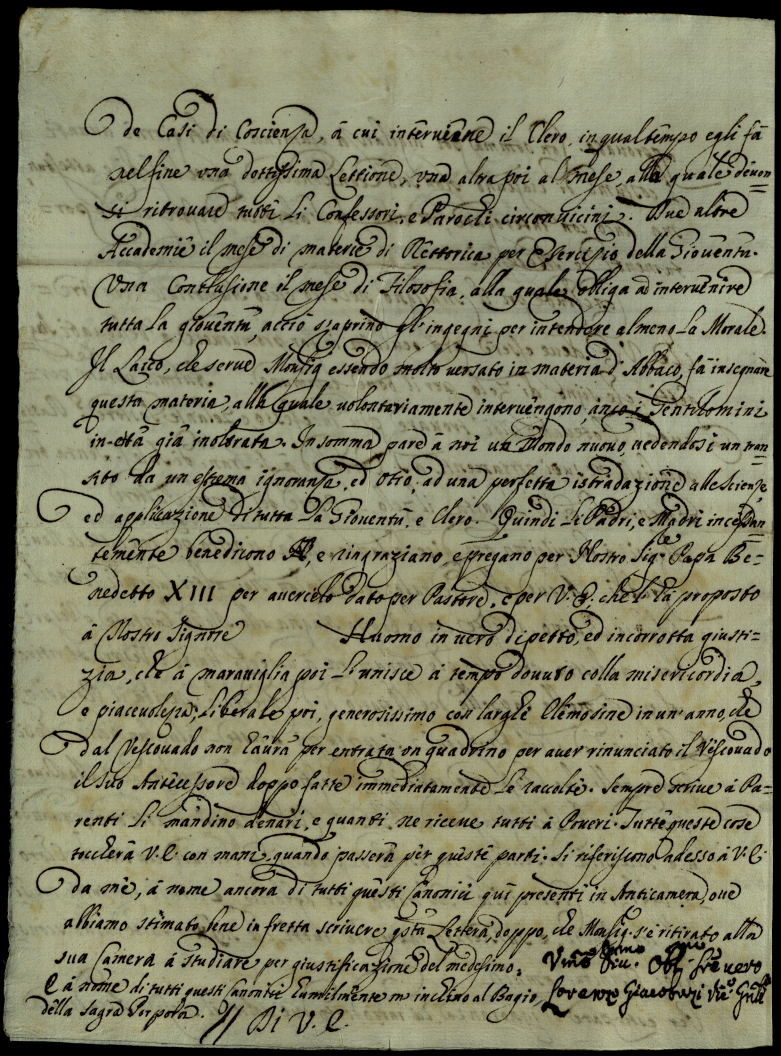 de Casi di Coscienza, à cui interviene il Clero, in qual tempo egli fà
nel fine vna dottissima Lettione, vna altra poi al Mese, alla quale devon=
si ritrovare tutti Li Confessori, e Parochi circonvicini. Due altre
Accademie il mese di materie di Rettorica per Esercitio della Gioventù.
Vna Conclusione il mese di Filosofia, alla quale obliga ad intervenire
tutta La gioventù, acciò s'aprino gl'ingegni per intendere almeno La Morale.
Il Laico, che serve Monsig. essendo molto versato in materia d'Abbaco, fà insegnare
questa materia, alla quale volontariamente intervengono, anco i Gentilomini
in età già inoltrata. In somma pare à noi un Mondo nuovo, vedendosi un tran=
sito da un estrema ignoranza, ed otio, ad una perfetta istradazione alle Scienze,
ed applicazione di tutta La Gioventù, e Clero. Quindi Li Padri, e Madri incessan=
temente benedicono, e ringraziano, e pregano per Nostro Sig.re Papa Be=
nedetto XIII per avercelo dato per Pastore, e per V. E. che l'hà proposto
à Nostro Signore Huomo in vero di petto, ed incorrotta giusti=
zia, che à maraviglia poi Li unisce à tempo dovuto colla misericordia,
e piacevolezza; Liberale poi, generosissimo con larghe Elemosine in un'anno, che
dal Vescovado non haurà per entrata un quadrino per aver rinunciato il Vescovado
il suo Antecessore doppo fatte immediatamente Le raccolte. Sempre scrive à Pa=
renti Li mandino denari, e quanti ne riceve tutti à Poveri. Tutte queste cose
toccherà V. E. con mani, quando passerà per queste parti. Si riferiscono adesso à V. E.
da me, à nome ancora di tutti questi Canonici quì presenti in Anticamera, ove
abbiamo stimato bene in fretta scrivere q.sta Lettera, doppo, che Monsig. s'è ritirato alla
sua Camera à studiare per giustificazione del medesimo.
E à nome di tutti questi Canonici humilmente m'inchino al Bagio
della Sagra Porpora.
Di V. E.
Vm̃o Dev.mo Obl.mo Ser.e vero
Lorenzo Giacobazi Vic.o Gnle